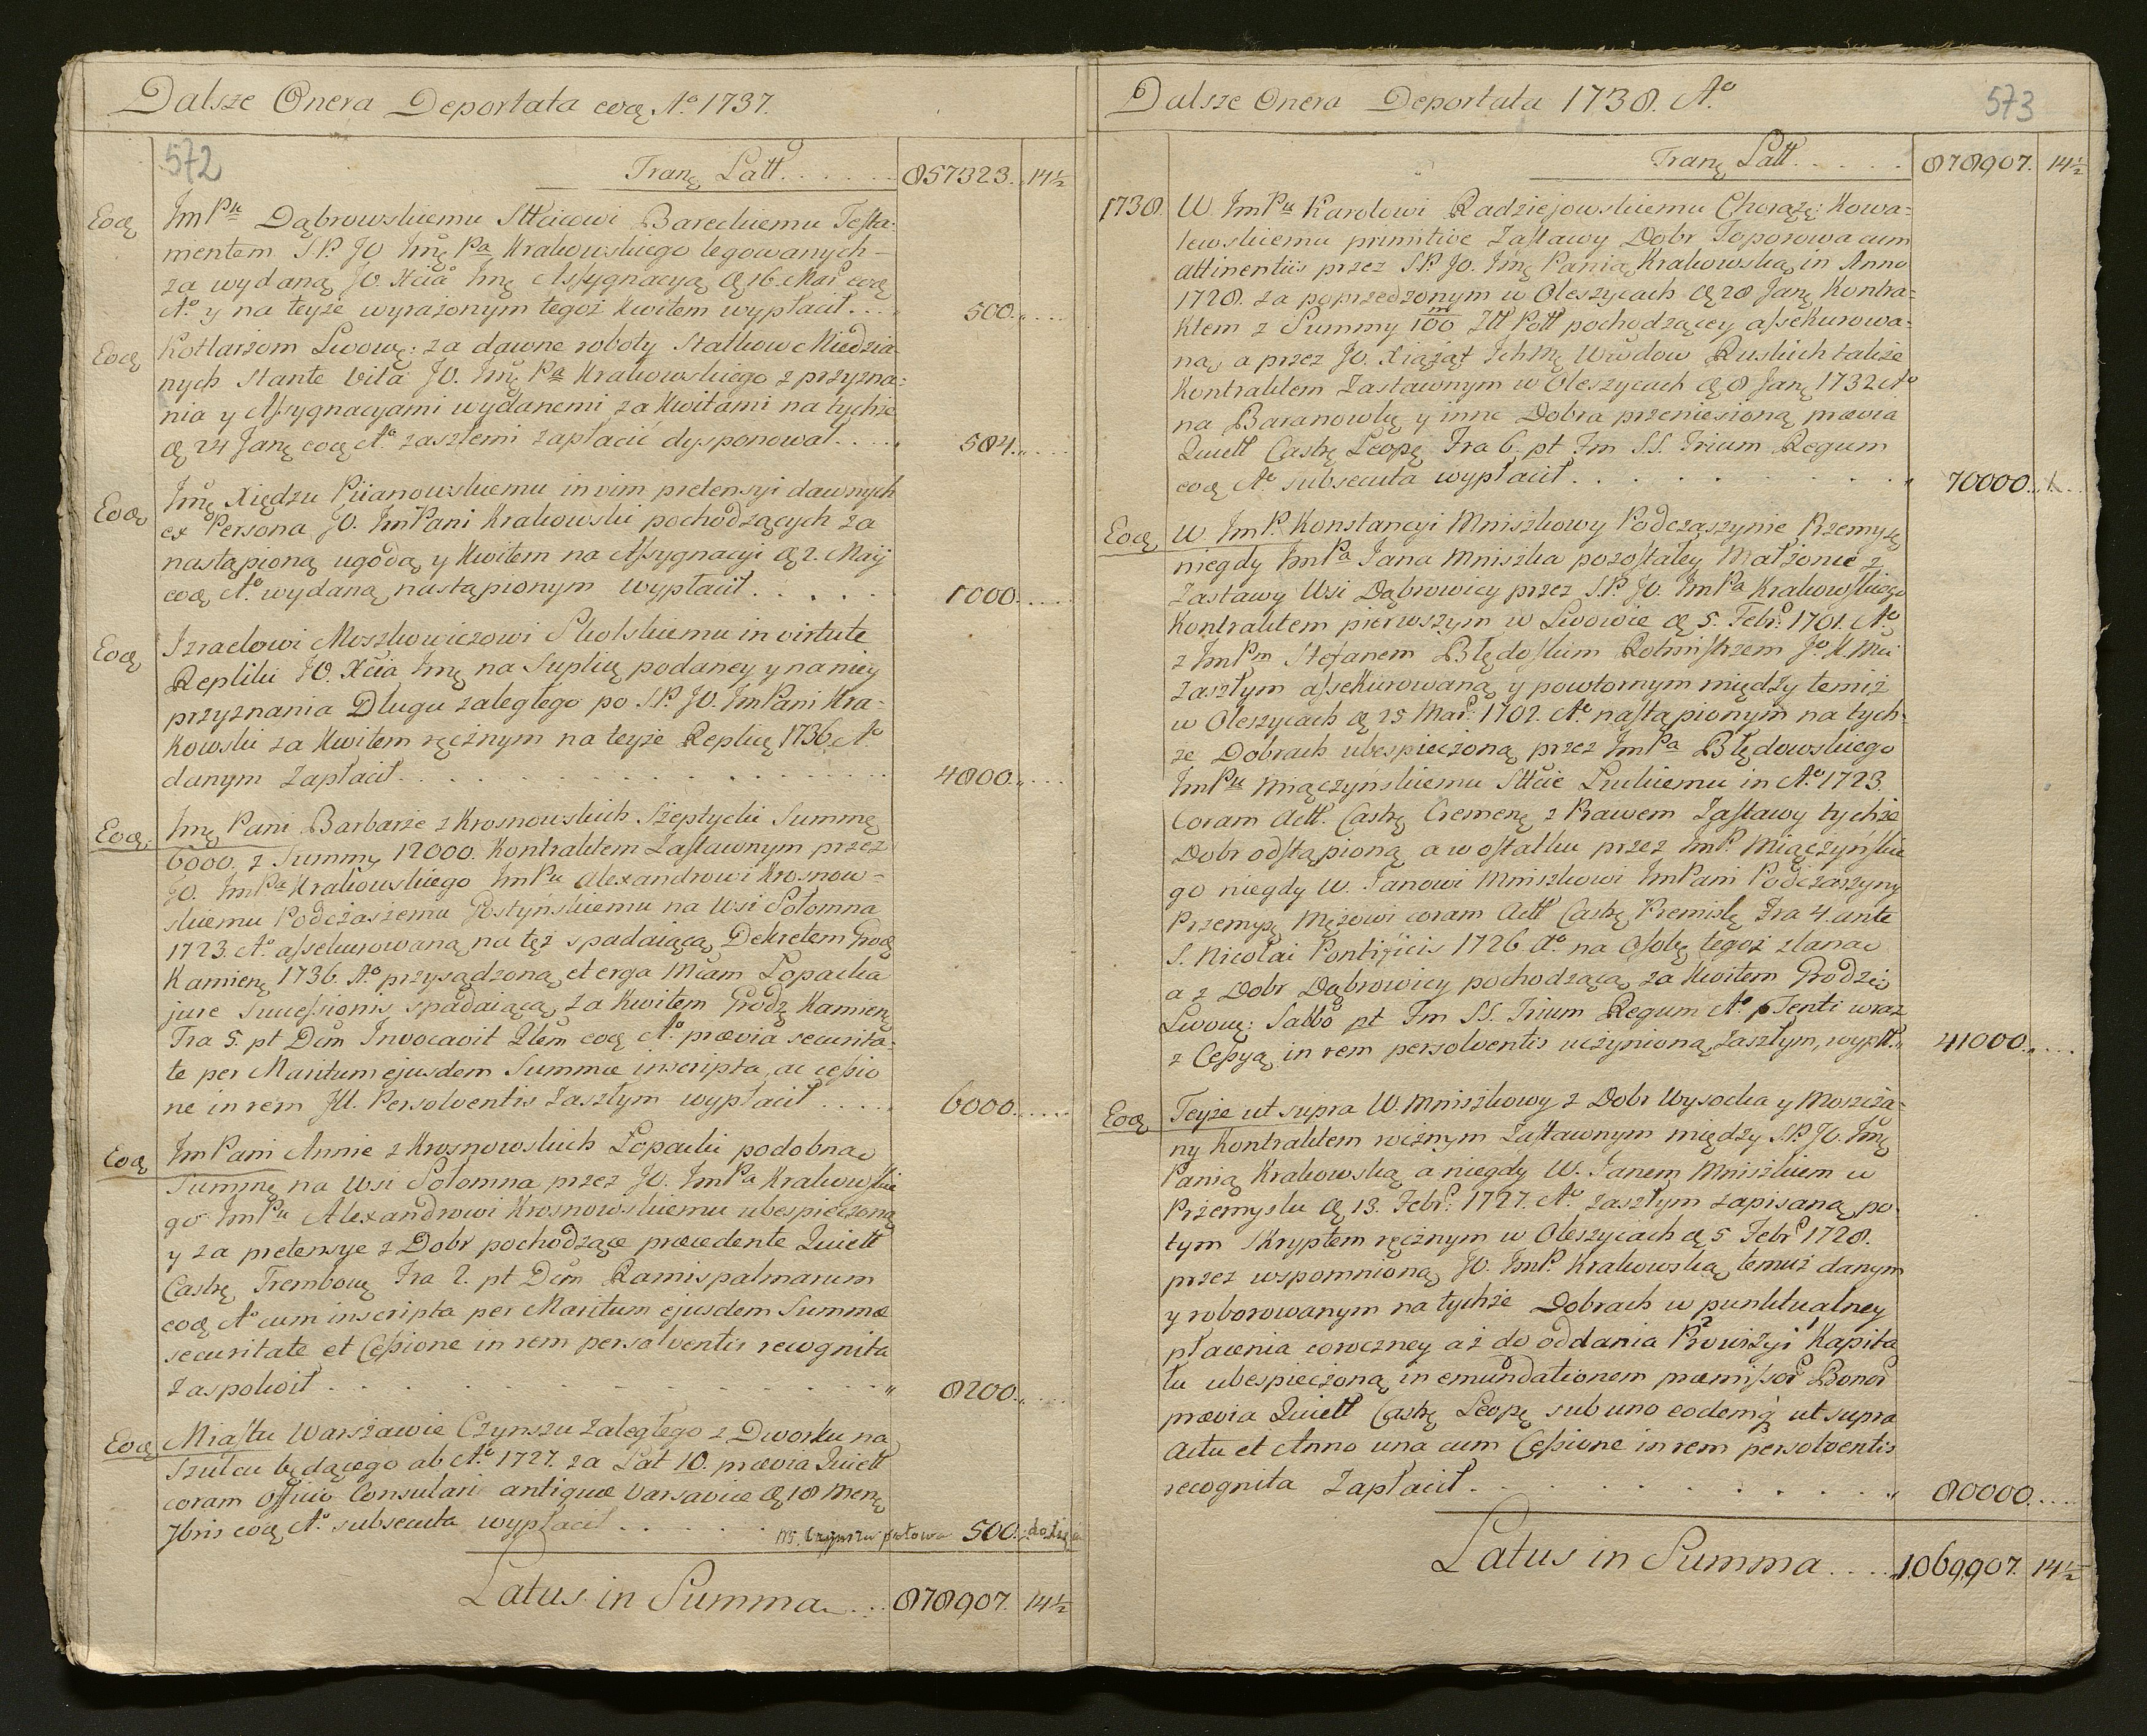 Dalsze Onera Deportata eoq A° 1737.
572
Tranq Latt 857323. 14½
Eoq ImPu Dąbrowskiemu Sttciowi Bareckiemu Testa:
mentem S.P. JO Imę Pa Krakowskiego legowanych
za wydaną JO. Xcia Imę Assygnacyą d 16. Maii eoq
A° y na teyże wyrażonym tegoż kwitem wypłacił .... 500.
Eoq Kotlarzom Lwowę: za dawne roboty Statkow Miedzia
nych Stante vita JO. Imę Pa Krakowskiego z przyzna:
nia y Assygnacyami wydanemi za Kwitami na tychże
d 24 Janę eoq A° zaszłemi zapłacić dysponował .... 584.
Eoq Imę Xiędzu Piianowskiemu in vim pretensyi dawnych
ex Persona JO. ImPani Krakowski pochodzących za
nastąpioną ugodą y Kwitem na Assygnacyi d 2. Maij
eoq A° wydaną nastąpionym wypłacił ..... 1000.
Eoq Izraelowi Moszkowiczowi Skolskiemu in virtute
Repliki JO. Xcia Imę na Suplicę podaney y na niey
przyznania Długu zaległego po S.P. JO. ImPani Kra-
kowski za kwitem ręcznym na teyże Replicę 1736. A°
danym zapłacił ..... 4800.
Eoq. Imę Pani Barbarze z Krosnowskich Szeptycki Summę
6000. z Summy 12000. Kontraktem Zastawnym przez
JO. ImPa Krakowskiego ImPu Alexandrowi Krosnow-
skiemu Podczaszemu Gostynskiemu na Wsi Sołomna
1723. A° assekurowaną na tęż spadaiącą Dekretem Grod
Kamienę 1736. A° przysądzoną, et erga Mciam Łopacka
jure Successionis spadaiącą, za Kwitem Grodz Kamienę
Fra 5. pt Dcm Invocavit Qlem eoq A° prævia securita-
te per Maritum ejusdem Summæ inscripta, ac cessio
ne in rem Ill. Persolventis zaszłym wypłacił .... 6000.
Eoq ImPani Annie z Krosnowskich Łopacki podobną
Summę na Wsi Sołomna przez JO. ImPa Krakowskie
go ImPu Alexandrowi Krosnowskiemu ubespieczoną
y za pretensye z Dobr pochodzące præcedente Quiett
Castrę Trembowę Fra 2. pt Dcm Ramispalmarum
eoq A° cum inscripta per Maritum ejusdem Summæ
securitate et Cessione in rem persolventis recognita
zaspokoił ..... 8200.
Eoq Miastu Warszawie Czynszu zaległego z Dworku na
Szulcu będącego ab A° 1727. za Lat 10. prævia Quiett
coram Officio Consulari antiquæ Varsaviæ d 18 Menę
7bris eoq A° subsecuta wypłacił ..... 500.
Czynszu połowa
Latus in Summa ... 878907. 14½
Dalsze Onera Deportata 1738. A°
573
Tranq Latt ..... 878907. 14½
1738. W. ImPu Karolowi Radziejowskiemu Chorążę: Kowa=
lewskiemu primitive Zastawy Dobr Toporowa cum
attinentiis przez S.P. JO. Imę Panią Krakowską in Anno
1728. za poprzedzonym w Oleszycach d 28 Janę Kontra=
ktem z Summy 100 m Złł Poll pochodzący assekurowa=
ną, a przez JO. Xiążąt Ichmę Wwdow Ruskich także
Kontraktem Zastawnym w Oleszycach d 8 Janę 1732 A°
na Baranowkę y inne Dobra przeniesioną, prævia
Quiett Castrę Leopę Fra 6. pt Fm SS. Trium Regum
eoq A° subsecuta wypłacił ..... 70000.
Eoq W. ImP. Konstancyi Mniszkowy Podczaszynie Przemysę
niegdy ImPa Jana Mniszka pozostałey Małżonce z
Zastawy Wsi Dąbrowicy przez S.P. JO. ImPa Krakowskiego
Kontraktem pierwszym w Lwowie d 5. Febr. 1701. A°
z ImPm Stefanem Błędoskim Rotmistrzem J° K. Mci
zaszłym assekurowaną y powtornym między temiż
w Oleszycach d 25 Mar. 1702. A° nastąpionym na tych-
że Dobrach ubespieczoną, przez ImPa Błędowskiego
ImPu Miączyńskiemu Sttcie Łuckiemu in A° 1723.
Coram Actt. Castrę Cremenę z Prawem Zastawy tychże
Dobr odstąpioną a w ostatku przez ImP. Miączyńskie
go niegdy W. Janowi Mniszkowi ImPani Podczaszyny
Przemysę Mężowi coram Actt Castrę Premislę Fra 4. ante
S. Nicolai Pontificis 1726. A° na Osobę tegoż zlaną
a z Dobr Dąbrowicy pochodzącą, za Kwitem Grodzę
Lwowę: Sabbo pt Fm SS. Trium Regum A° pSenti wraz
z Cessyą in rem persolventis uczynioną zaszłym, wypł. 41000.
Eoq Teyże ut supra W. Mniszkowy z Dobr Wysocka y Moszcza-
ny Kontraktem ręcznym Zastawnym między S.P. JO. Imę
Panią Krakowską a niegdy W. Janem Mniszkiem w
Przemyslu d 13. Febr. 1727. A° zaszłym zapisaną, po-
tym Skryptem ręcznym w Oleszycach d 5 Febr 1728.
przez wspomnioną JO. ImP. Krakowską temuż danym
y roborowanym na tychże Dobrach w punktualney
płacenia coroczney aż do oddania Prowizyi² Kapita¹
łu ubespieczoną in emundationem præmissor Bonor
prævia Quiett Castrę Leopę sub uno eodemq ut supra
Actu et Anno una cum Cessione in rem persolventis
recognita Zapłacił ..... 80000.
Latus in Summa .... 1069907. 14½